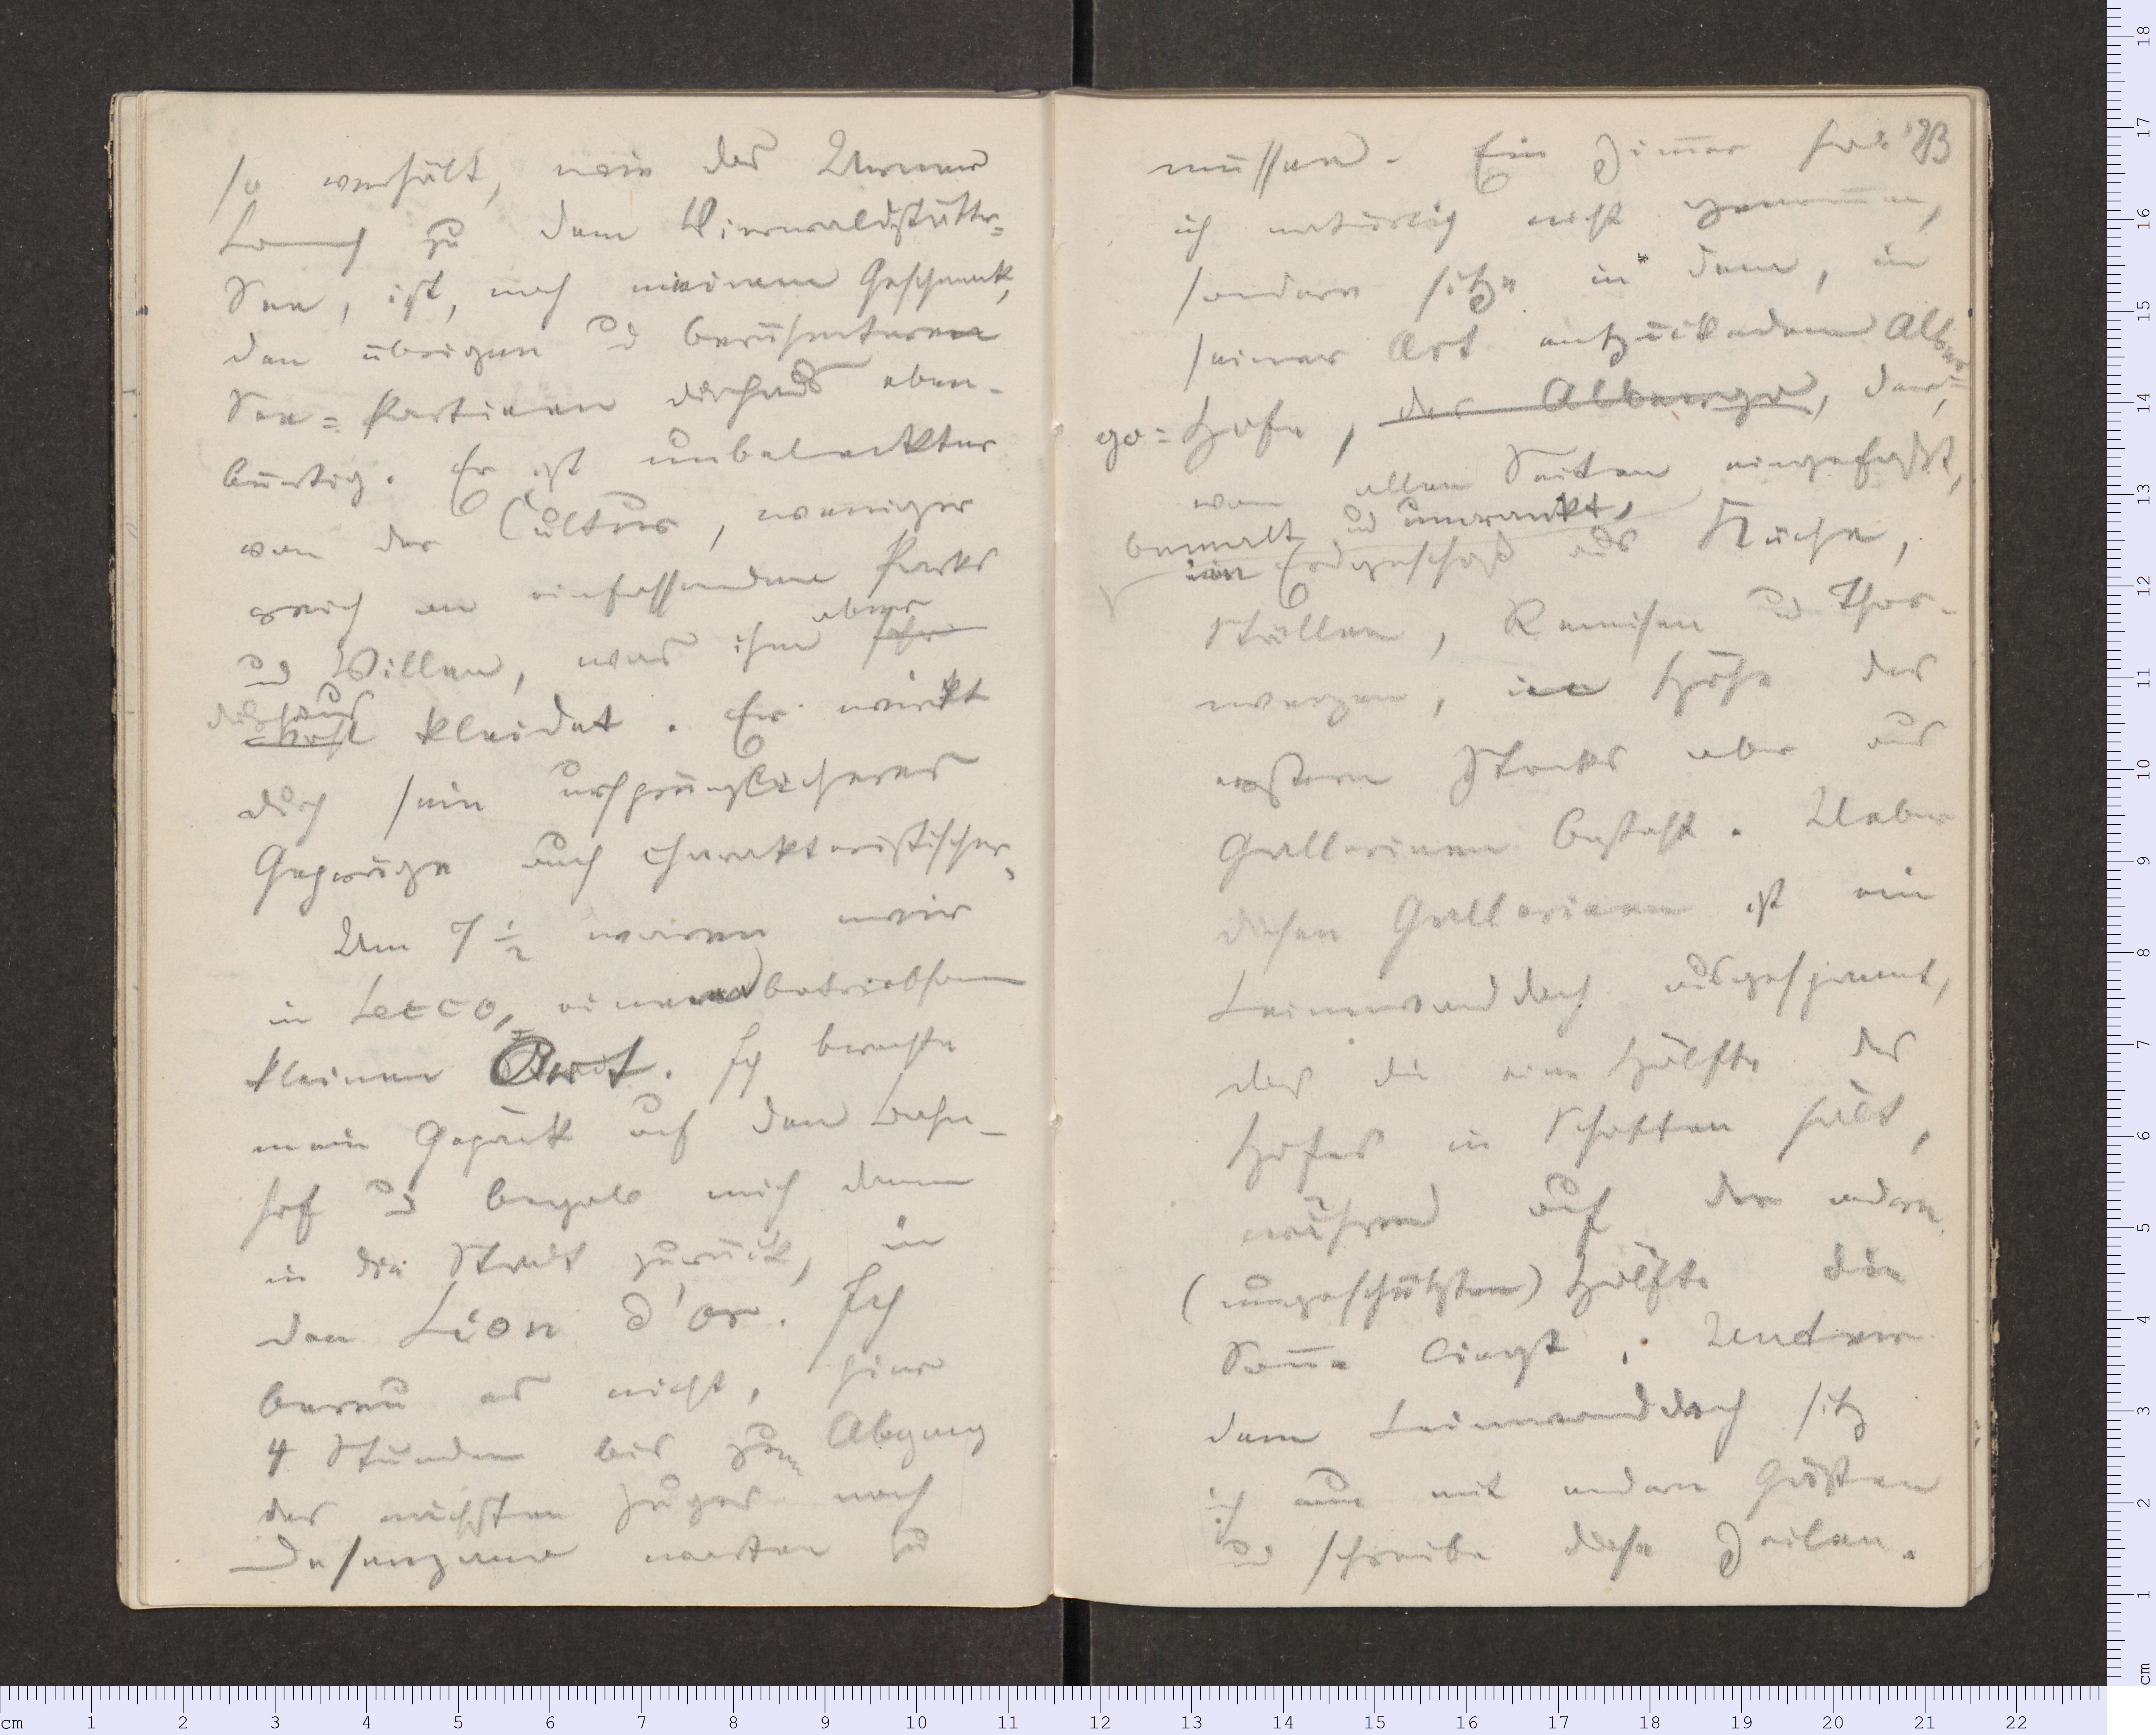 so verhält, wie der Urner
Lauf zu dem Vierwaldstätter=
See, ist, nach meinem Geschmack,
den übrigen und berühmteren
See=Partieen durchaus eben-
bürtig. Er ist unbeleckter
von der Cultur, weniger
reich an einfassenden Parks
und Villen, was ihn sehr aber
wohl durchaus kleidet. Er wirkt
durch sein ursprünglicheres
Gepräge auch charakteristischer.
Um 7 ½ waren wir
in Lecco, einem betriebsam
kleinen Ort. Ich brachte
mein Gepäck auf den Bahn-
hof und begab mich dann
in die Stadt zurück, in
den Lion d'or. Ich
bereu es nicht, hier
4 Stunden bis zum Abgang
des nächsten Zuges nach
Desenzano warten zu
23
müssen. Ein Zimmer hab
ich natürlich nicht genommen,
sondern sitze in dem, in
seiner Art entzückenden Alber-
go=Hofe, der Alberge, der,
von allen Seiten eingefaßt,
bemalt und umrankt,
im Erdgeschoß aus Küche,
Ställen, Remisen und Thor-
wegen, in Höhe des
ersten Stocks aber aus
Gallerieen besteht. Ueber
diesen Gallerieen ist ein
Leinwanddach ausgespannt,
das die eine Hälfte des
Hofes in Schatten hält,
während auf der andern
(ungeschützten) Hälfte die
Sonne liegt. Unter
dem Leinwanddach sitz
ich nun mit andern Gästen
und schreibe diese Zeilen.